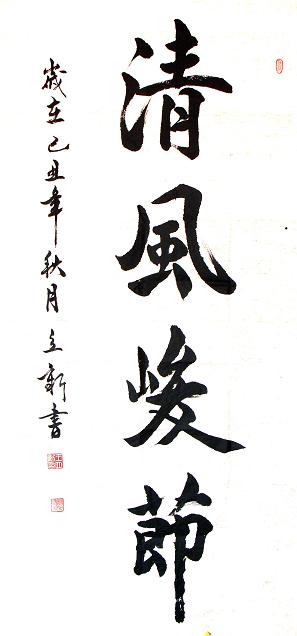 清風峻節
歲在己丑年秋月立新書